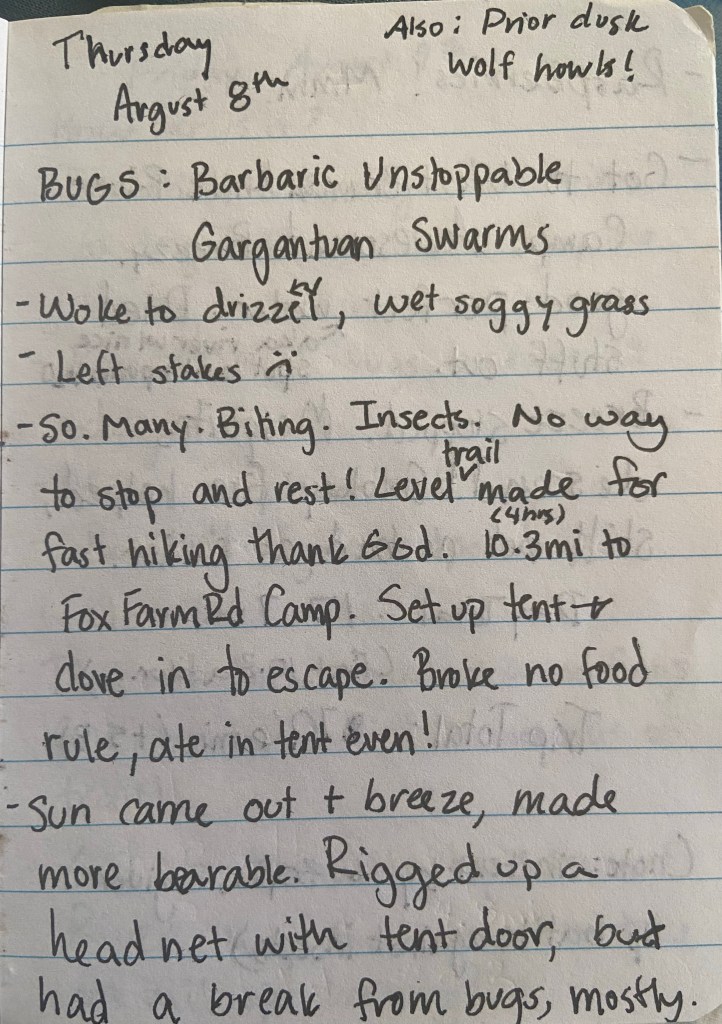 Thursday
August 8th
Also: Prior dusk
Wolf howls!
BUGS: Barbaric Unstoppable
Gargantuan Swarms
- Woke to drizzel, wet soggy grass
- Left stakes :(
- So. Many. Biting. Insects. No way
to stop and rest! Level trail made for
fast hiking thank God. 10.3mi (4hrs) to
Fox Farm Rd Camp. Set up tent +
dove in to escape. Broke no food
rule, ate in tent even!
- Sun came out + breeze, made
more bearable. Rigged up a
head net with tent door, but
had a break from bugs, mostly.